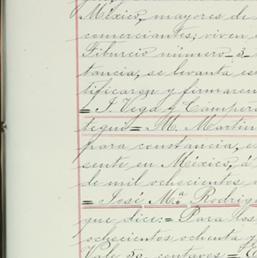 México, mayores de
comerciantes, viven
Tiburcio número 3
tancia, se levanta
tificaron y firmaron
= I. Vega y Campero
tegui = M. Martin
para constancia,
sente en México, á
de mil ochocientos
= José Mª Rodrig
que dice: = Para los
ochocientos ochenta y
Vale 50 centavos =